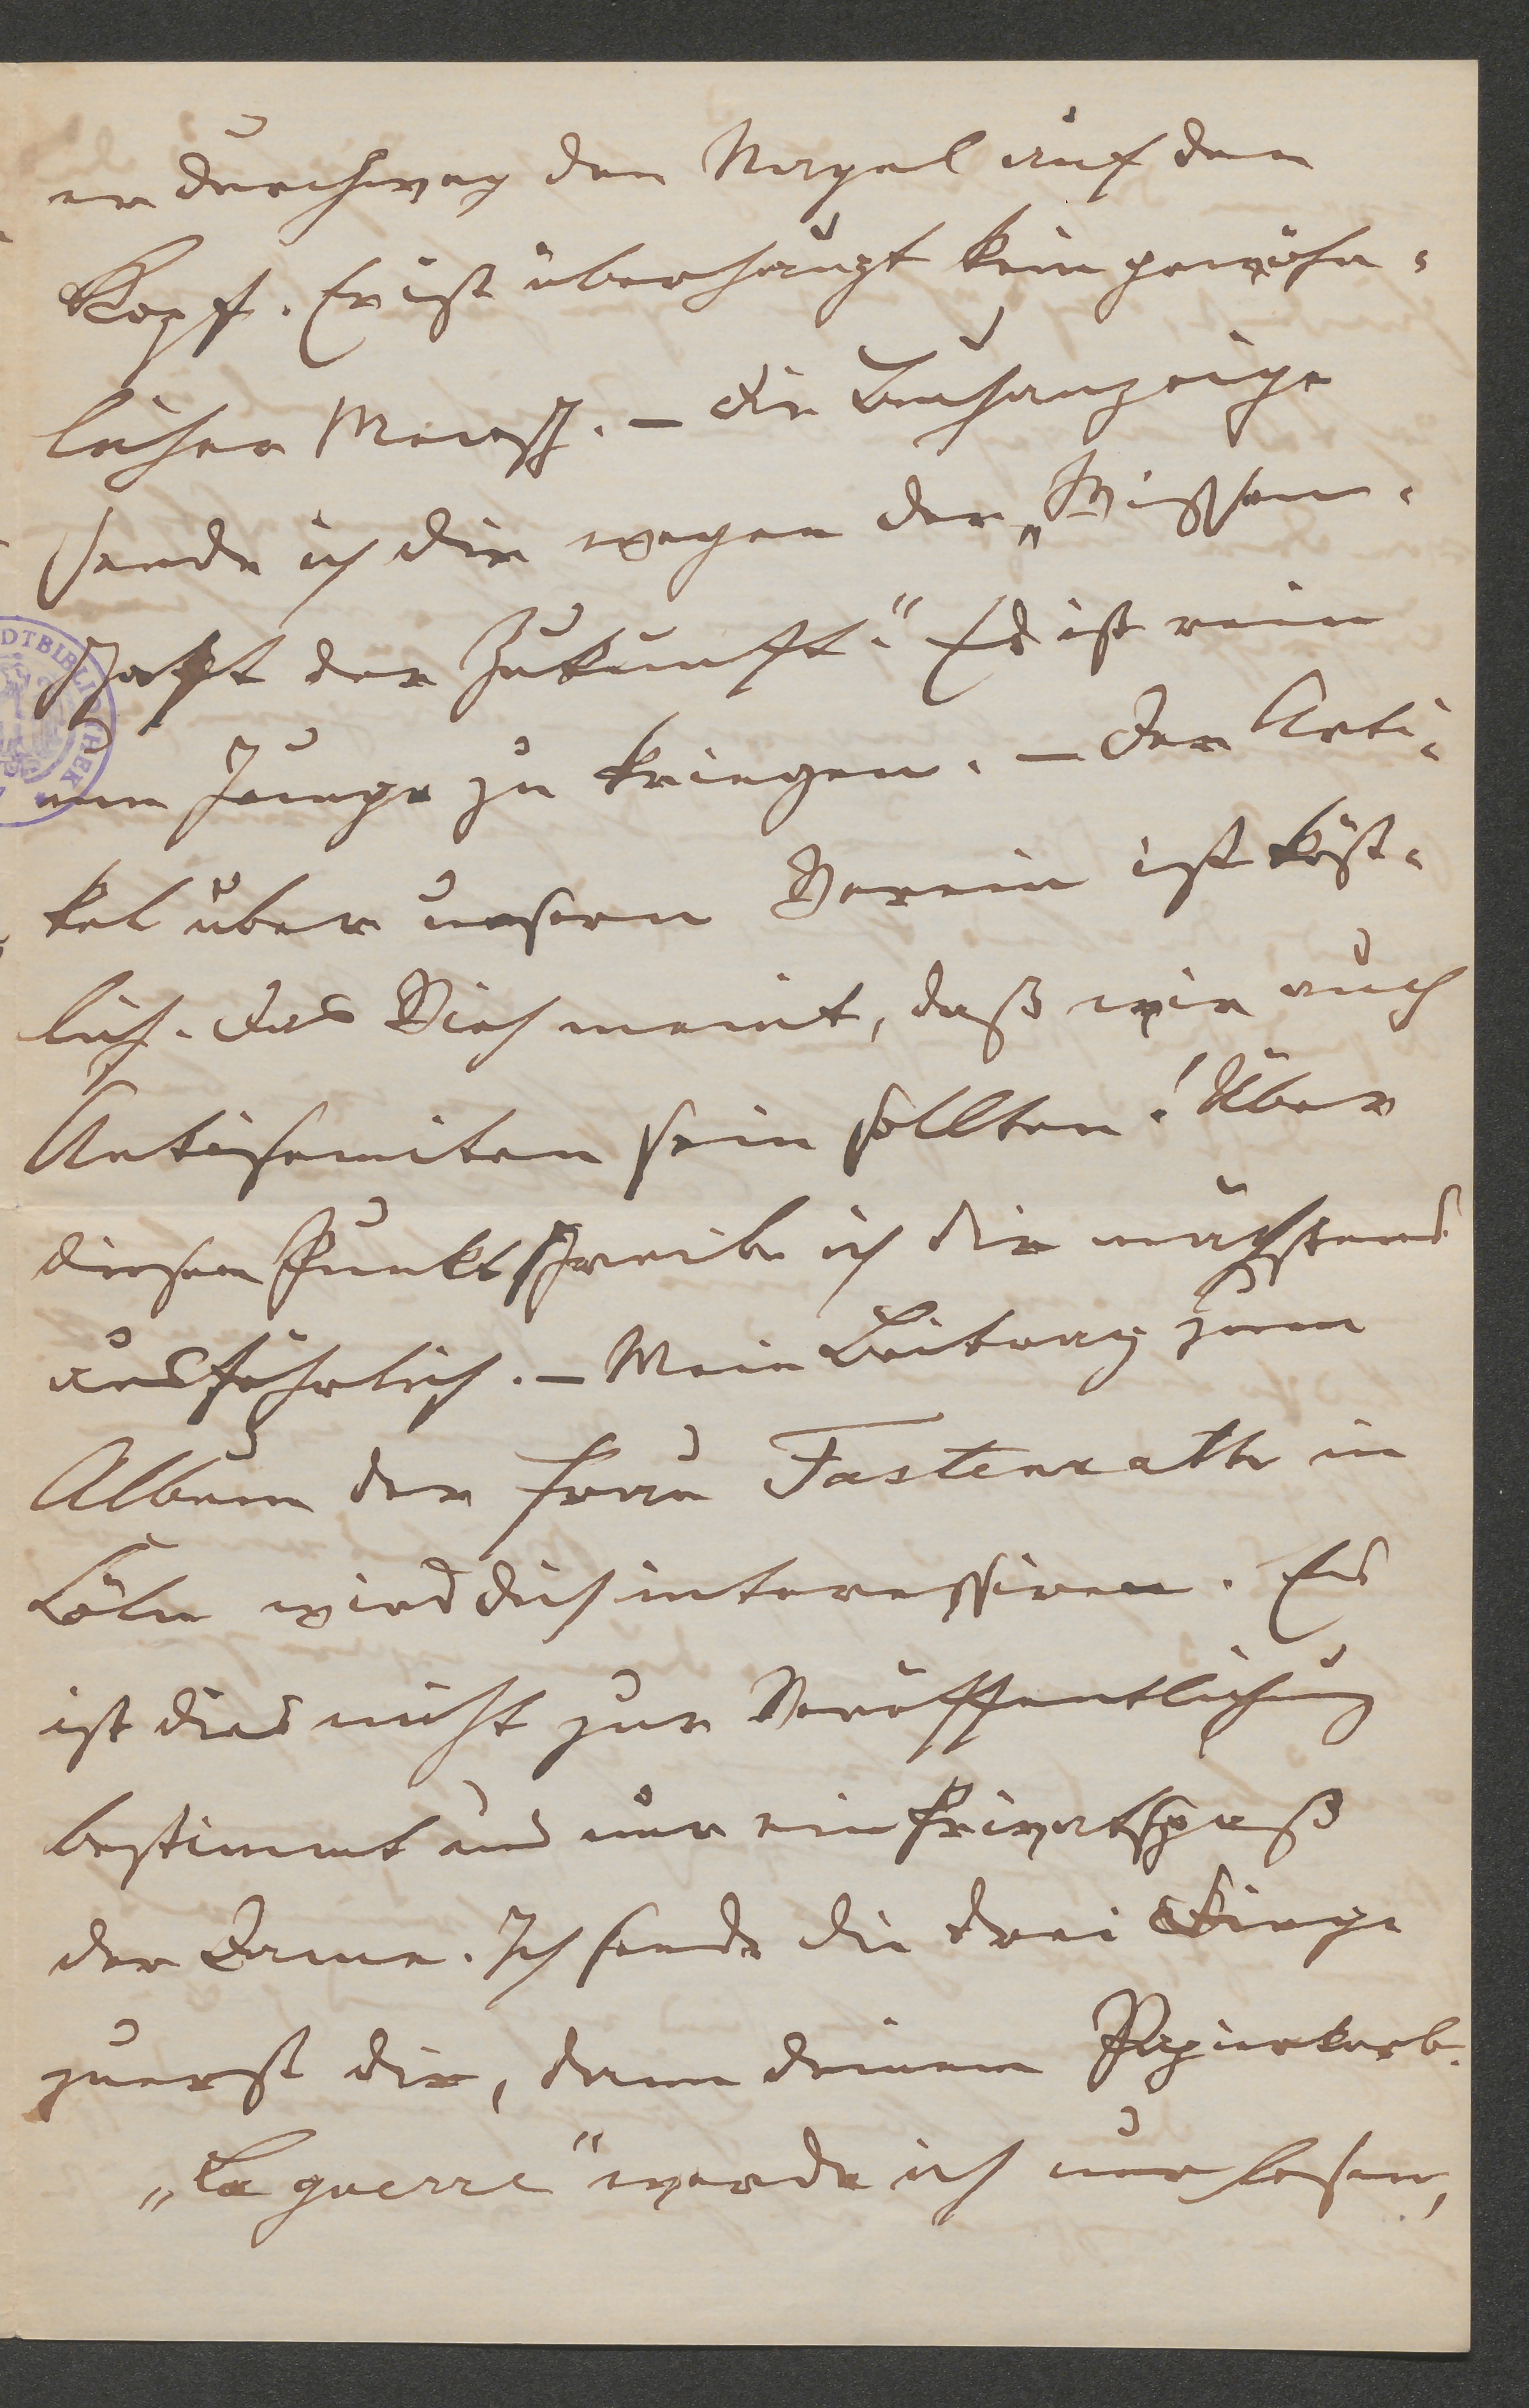 er durchweg den Nagel auf den
Kopf. Er ist überhaupt kein gewöhn-
licher Mensch. – Die Buchanzeige
sende ich dir wegen der „Wissen-
schaft der Zukunft." Es ist rein
um Junge zu kriegen. – Der Arti-
kel über unsern Verein ist köst-
lich. Das Vieh meint, daß wir auch
Antisemiten sein sollten! Über
diesen Punkt schreibe ich dir nächstens
ausführlich. – Mein Beitrag zum
Album der Frau Fastenrath in
Cöln wird dich interessiren. Es
ist dies nicht zur Veröffentlichung
bestimmt und nur ein Privatspaß
der Dame. Ich sende die drei Dinge
zuerst dir, dann deinem Papierkorb.
„La guerre" werde ich nur lesen,
DTBIBLIOTHEK